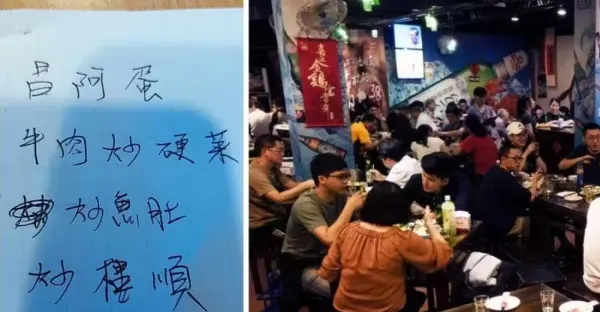 昌阿蛋
牛肉炒硬菜
炒魚肚
炒樓順